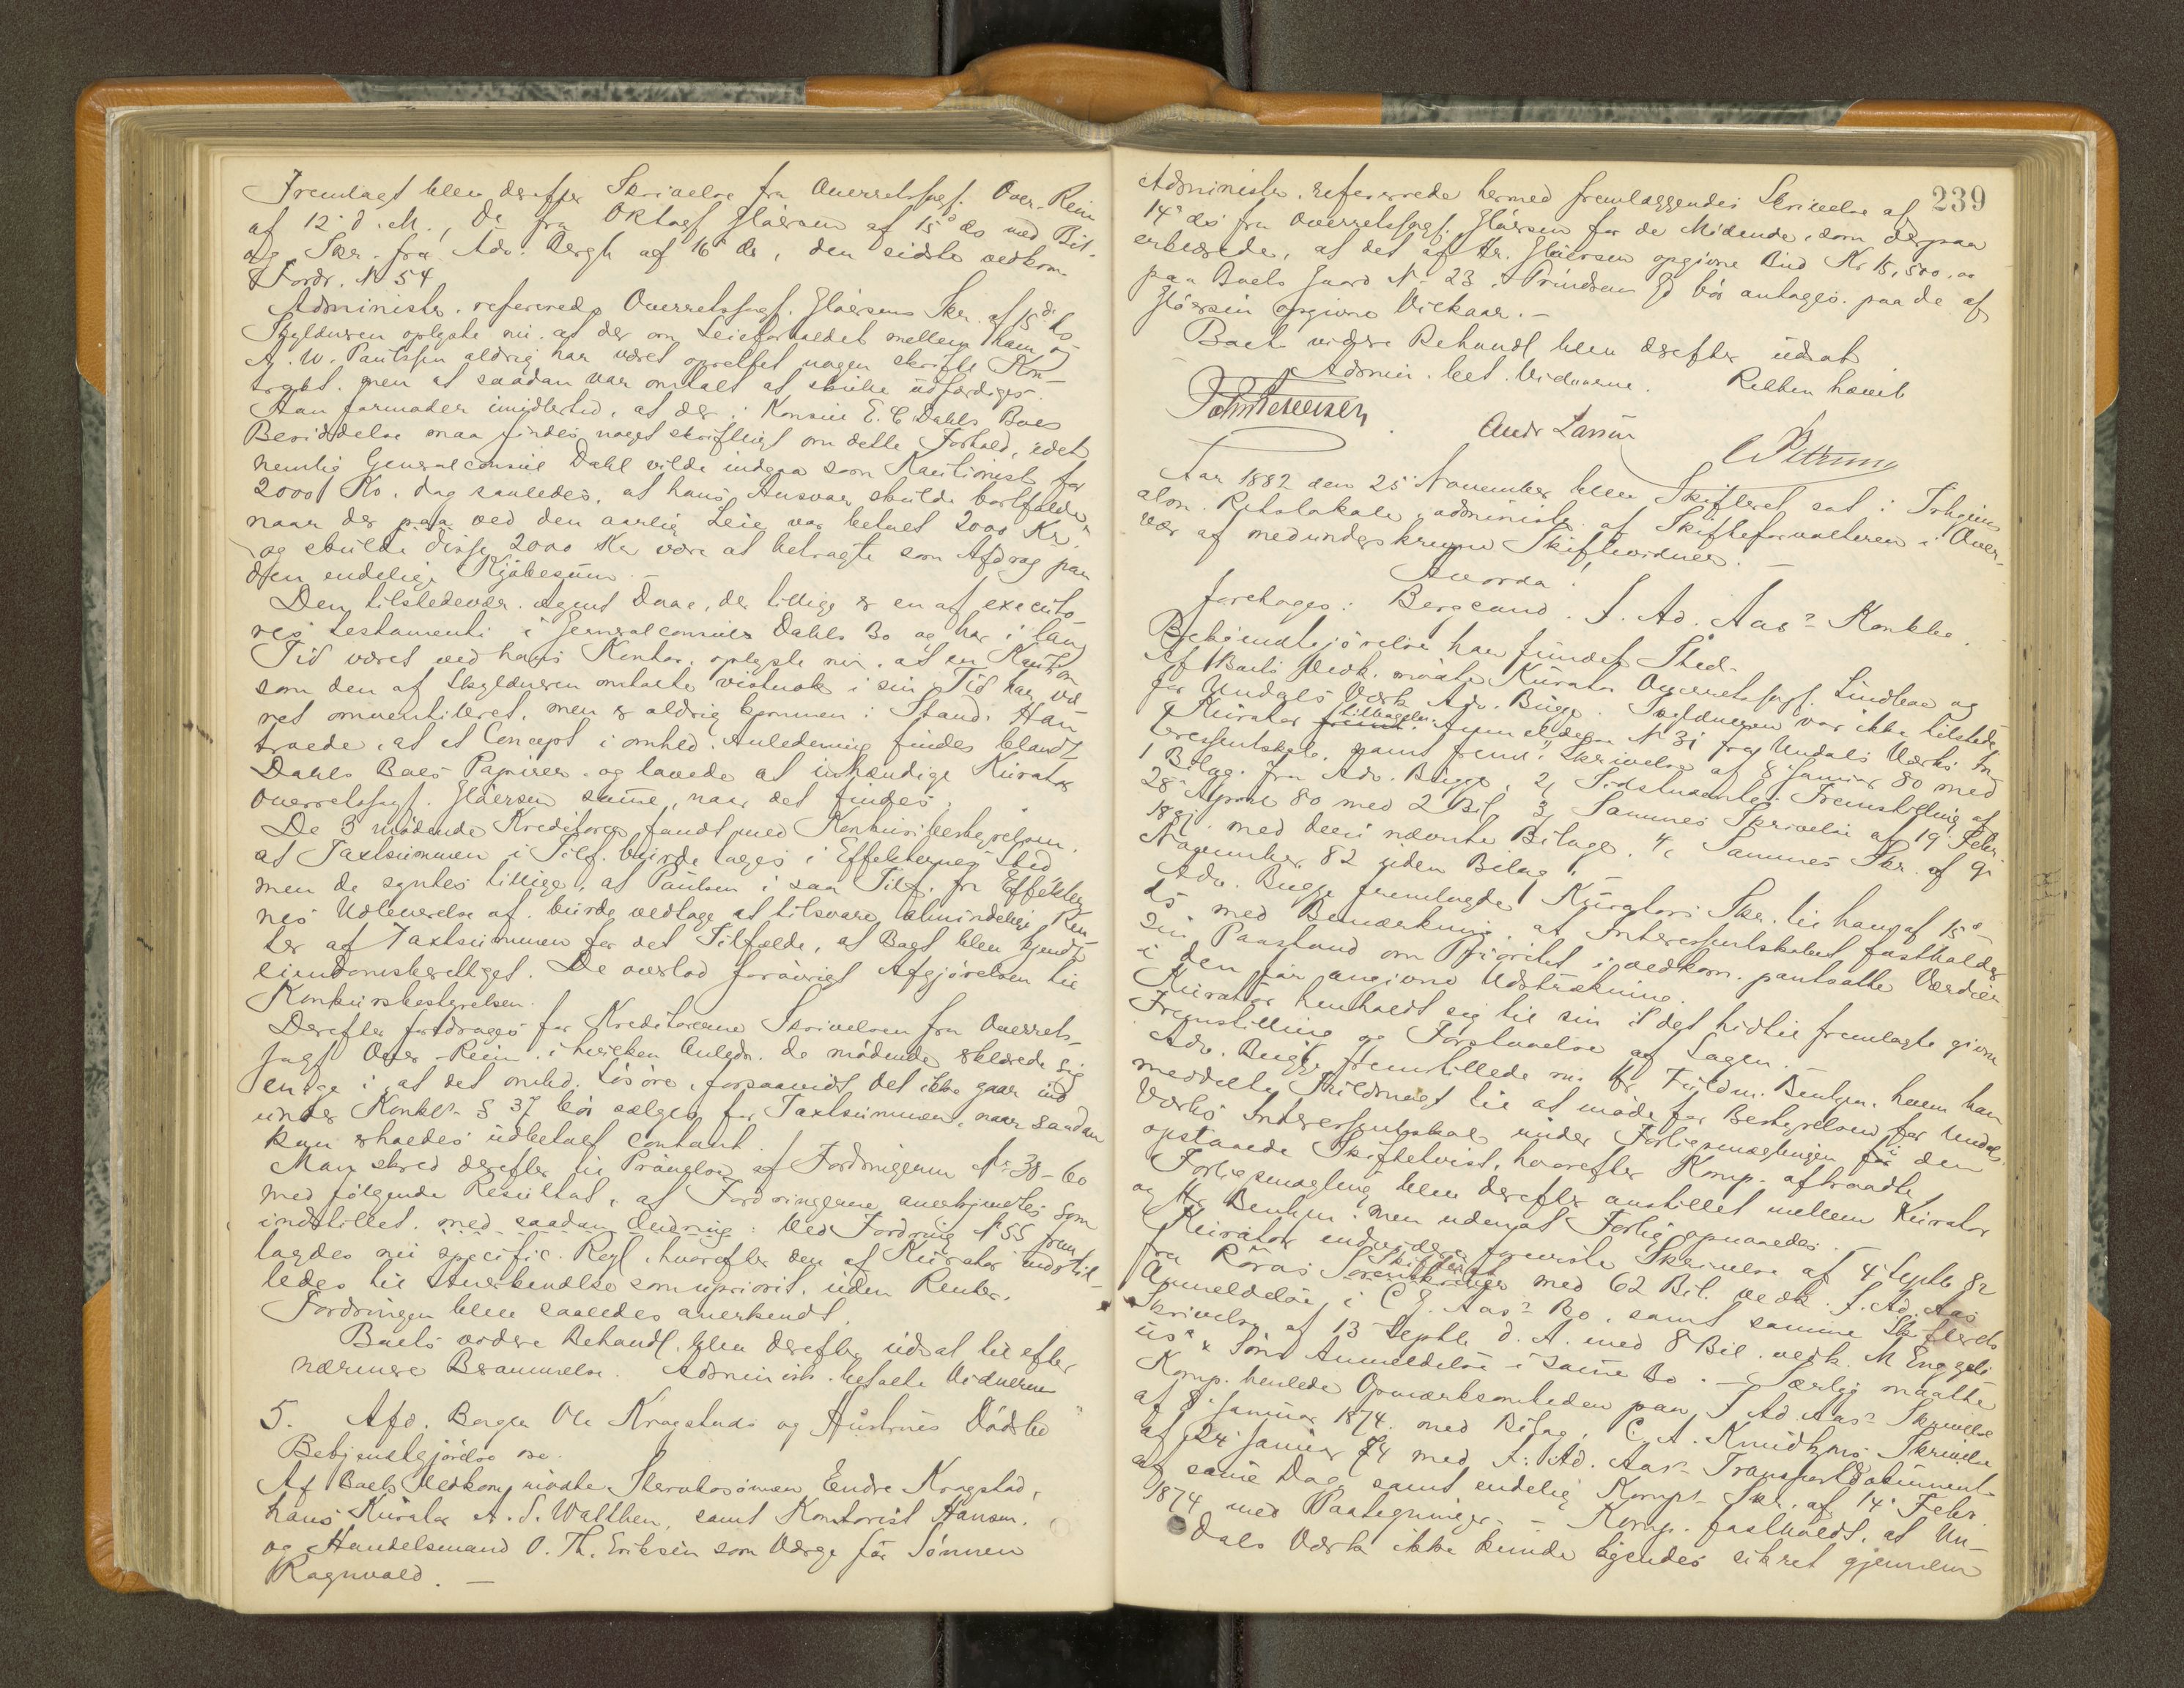 Fremlagt blev derefter Skrivelse fra Overretssagf. Over-Rein
af 12' d. M., Do fra ORtssagf Gløersen af 15' ds med Bil.
og Skr. fra Adv. Bergh af 16' ds, den sidste vedkom.
Fordr. N 54
Administr. refererede Overretssagf. Gløersens Skr. af 15' ds
Skyldneren oplyste nu, at der om Leieforholdet mellem ham og
A. W. Paulsen aldrig har været oprettet nogen skriftl. Kon-
trakt, men at saadan var omtalt at skulle udfærdiges.
Han formoder imidlertid, at der i Konsul E. C. Dahls Boes
Besiddelse maa findes noget skriftligt om dette Forhold, idet
nemlig Generalconsul Dahl vilde indgaa som Kautionist for
2000 Kr. dog saaledes, at hans Ansvar skulde bortfalde
naar der paa ved den aarlig Leie var betalt 2000 Kr.
og skulde disse 2000 Kr være at betragte som Afdrag paa
den endelige Kjøbesum. —
Den tilstedevær. Agent Daae, der tillige er en af executo-
res testamenti i Generalconsul Dahls Bo og har i lang
Tid været ved hans Kontor, oplyste nu, at en Kaution
som den af Skyldneren omtalte vistnok i sin Tid har væ-
ret omventileret, men er aldrig kommen i Stand. Han
troede, at et Concept i omhdl. Anledning findes blandt
Dahls Boes Papirer og lovede at indhændige Kurator
Overretssagf. Gløersen samme, naar det findes.
De 3 mødende Kreditorer fandt med Konkursbestyrelsen,
at Taxtsummen i Tilf. burde tages i Effekternes Sted
men de syntes tillige, at Paulsen i saa Tilf. fra Effekter
nes Udleverelse af burde vedtage at tilsvare almindelige Ren
ter af Taxtsummen for det Tilfælde, at Boet blev kjendt
eiendomsberettiget. De overlod forøvrigt Afgjørelsen til
Konkursbestyrelsen.
Derefter fordroges for Kreditorerne Skrivelsen fra Overrets-
sagf Over-Rein, i hvilken Anledn. de mødende erklærede sig
enige i, at det omhdl. Løsøre, forsaavidt det ikke gaar ind
under Konkl. § 37 bør sælges for Taxtsummen, naar saadan
kan erholdes udbetalt contant.
Man skred derefter til Prøvelse af Fordringerne No 38-60
med følgende Resultat, at Fordringerne anerkjendtes som
indstillet, med saadan Ændring: Ved Fordring N 55 frem
lagdes nu specific. Regl., hvorefter den af Kurator indstil-
ledes til Anerkendelse som uprivrit. uden Renter.
Fordringen blev saaledes anerkendt.
Boets videre Behandl. blev derefter udsat til efter
nærmere Berammelse. Administr. betalte Vidnerne
5. Afd. Borger Ole Kragstads og Hustrues Dødsbo
Bekjendtgjørelse
Af Boets Vedkom. mødte Sterbosønnen Endre Kragstad,
hans Kurator A. S. Walthen, samt Kontorist Hansen,
og Handelsmand O. Th. Eriksen som Værge for Sønnen
Ragnvald. —
239
Administr. refererede hermed fremlæggendes Skrivelse af
14' ds fra Overretssagf. Gløersen for de Mødende, som derpaa
erklærede, at det af Hr. Gløersen opgivne Bud Kr 15,500,00
paa Boets Gaard No 23 i Prindsens Gd bør antages paa de af
Gløersen opgivne Vilkaar. —
Boets videre Behandl blev derefter udsat
Admin. bet. Vidnerne. Retten hævet
Andr Larsen
Aar 1882 den 25 November blev Skifteret sat i Trhjems
alm. Retslokale, administr. af Skifteforvalteren i Over-
vær af medunderskrevne Skiftevidner. —
Hvorda!
foretoges: Bergcand. J. Ad. Aas's Konkbo.
Bekjendtgjørelse har fundet Sted.
Af Boets Vedk. mødte Kurator Overretssagf. Lindboe og
for Undals Værk Adv. Bugge. Skyldneren var ikke tilstede
Kurator tilbagelev. N 31 fra Undals Værks In
teressentskab, samt freml. 1, Skrivelse af 8 Januar 80 med
1 Bilag fra Adv. Bugge, 2, Sidstnævntes Fremstilling af
28' April 80 med 2 Bil. 3, Sammes Skrivelse af 19' Febr.
1881 med deri nævnte Bilage. 4, Sammes Skr. af 9'
November 82 uden Bilag.
Adv. Bugge fremlagde Kurators Skr. til ham af 15'
ds med Bemærkning, at Interessentskabet fastholder
sin Paastand om Prioritet i vedkom. pantsatte Værdier
i den før angivne Udstrækning.
Kurator henholdt sig til sin til det hidtil fremlagte givne
Fremstilling og Forstaaelse af Sagen. —
Adv. Bugge fremstillede nu Hr Fuldm. Benhm. hvem han
meddelte Fuldmagt til at møde for Bestyrelsen for Undals
Værks Interessentskab under Forligsmæglingen i den
opstaaede Skiftetvist, hvorefter Komp. aftraadte
Forligsmægling blev derefter anstillet mellem Kurator
og Hr Benhm. men uden at Forlig opnaaedes. —
Kurator endvidere foreviste Skrivelse af 4 Septb 82
fra Røros Skifteret med 62 Bil. vedk. J. Ad. Aas
Anmeldelse i C. J. Aas's Bo, samt samme Skifterets
Skrivelse af 13 Septb d. A. med 8 Bil. vedk. M Enggeli
us' & Søns Anmeldelse i samme Bo. — Særlig maatte
Komp. henlede Opmærksomheden paa J Ad Aas' Skrivelse
af 8' Januar 1874 med Bilag, C. A. Knudtzons Skrivelse
af 24' Januar 74 med J. Ad. Aas' Transportdokument
af samme Dag samt endelig Komp's Skr. af 14' Febr.
1874 med Paategninger. — Komp. fastholdt, at Un-
dals Værk ikke kunde agtes sikret gjennem